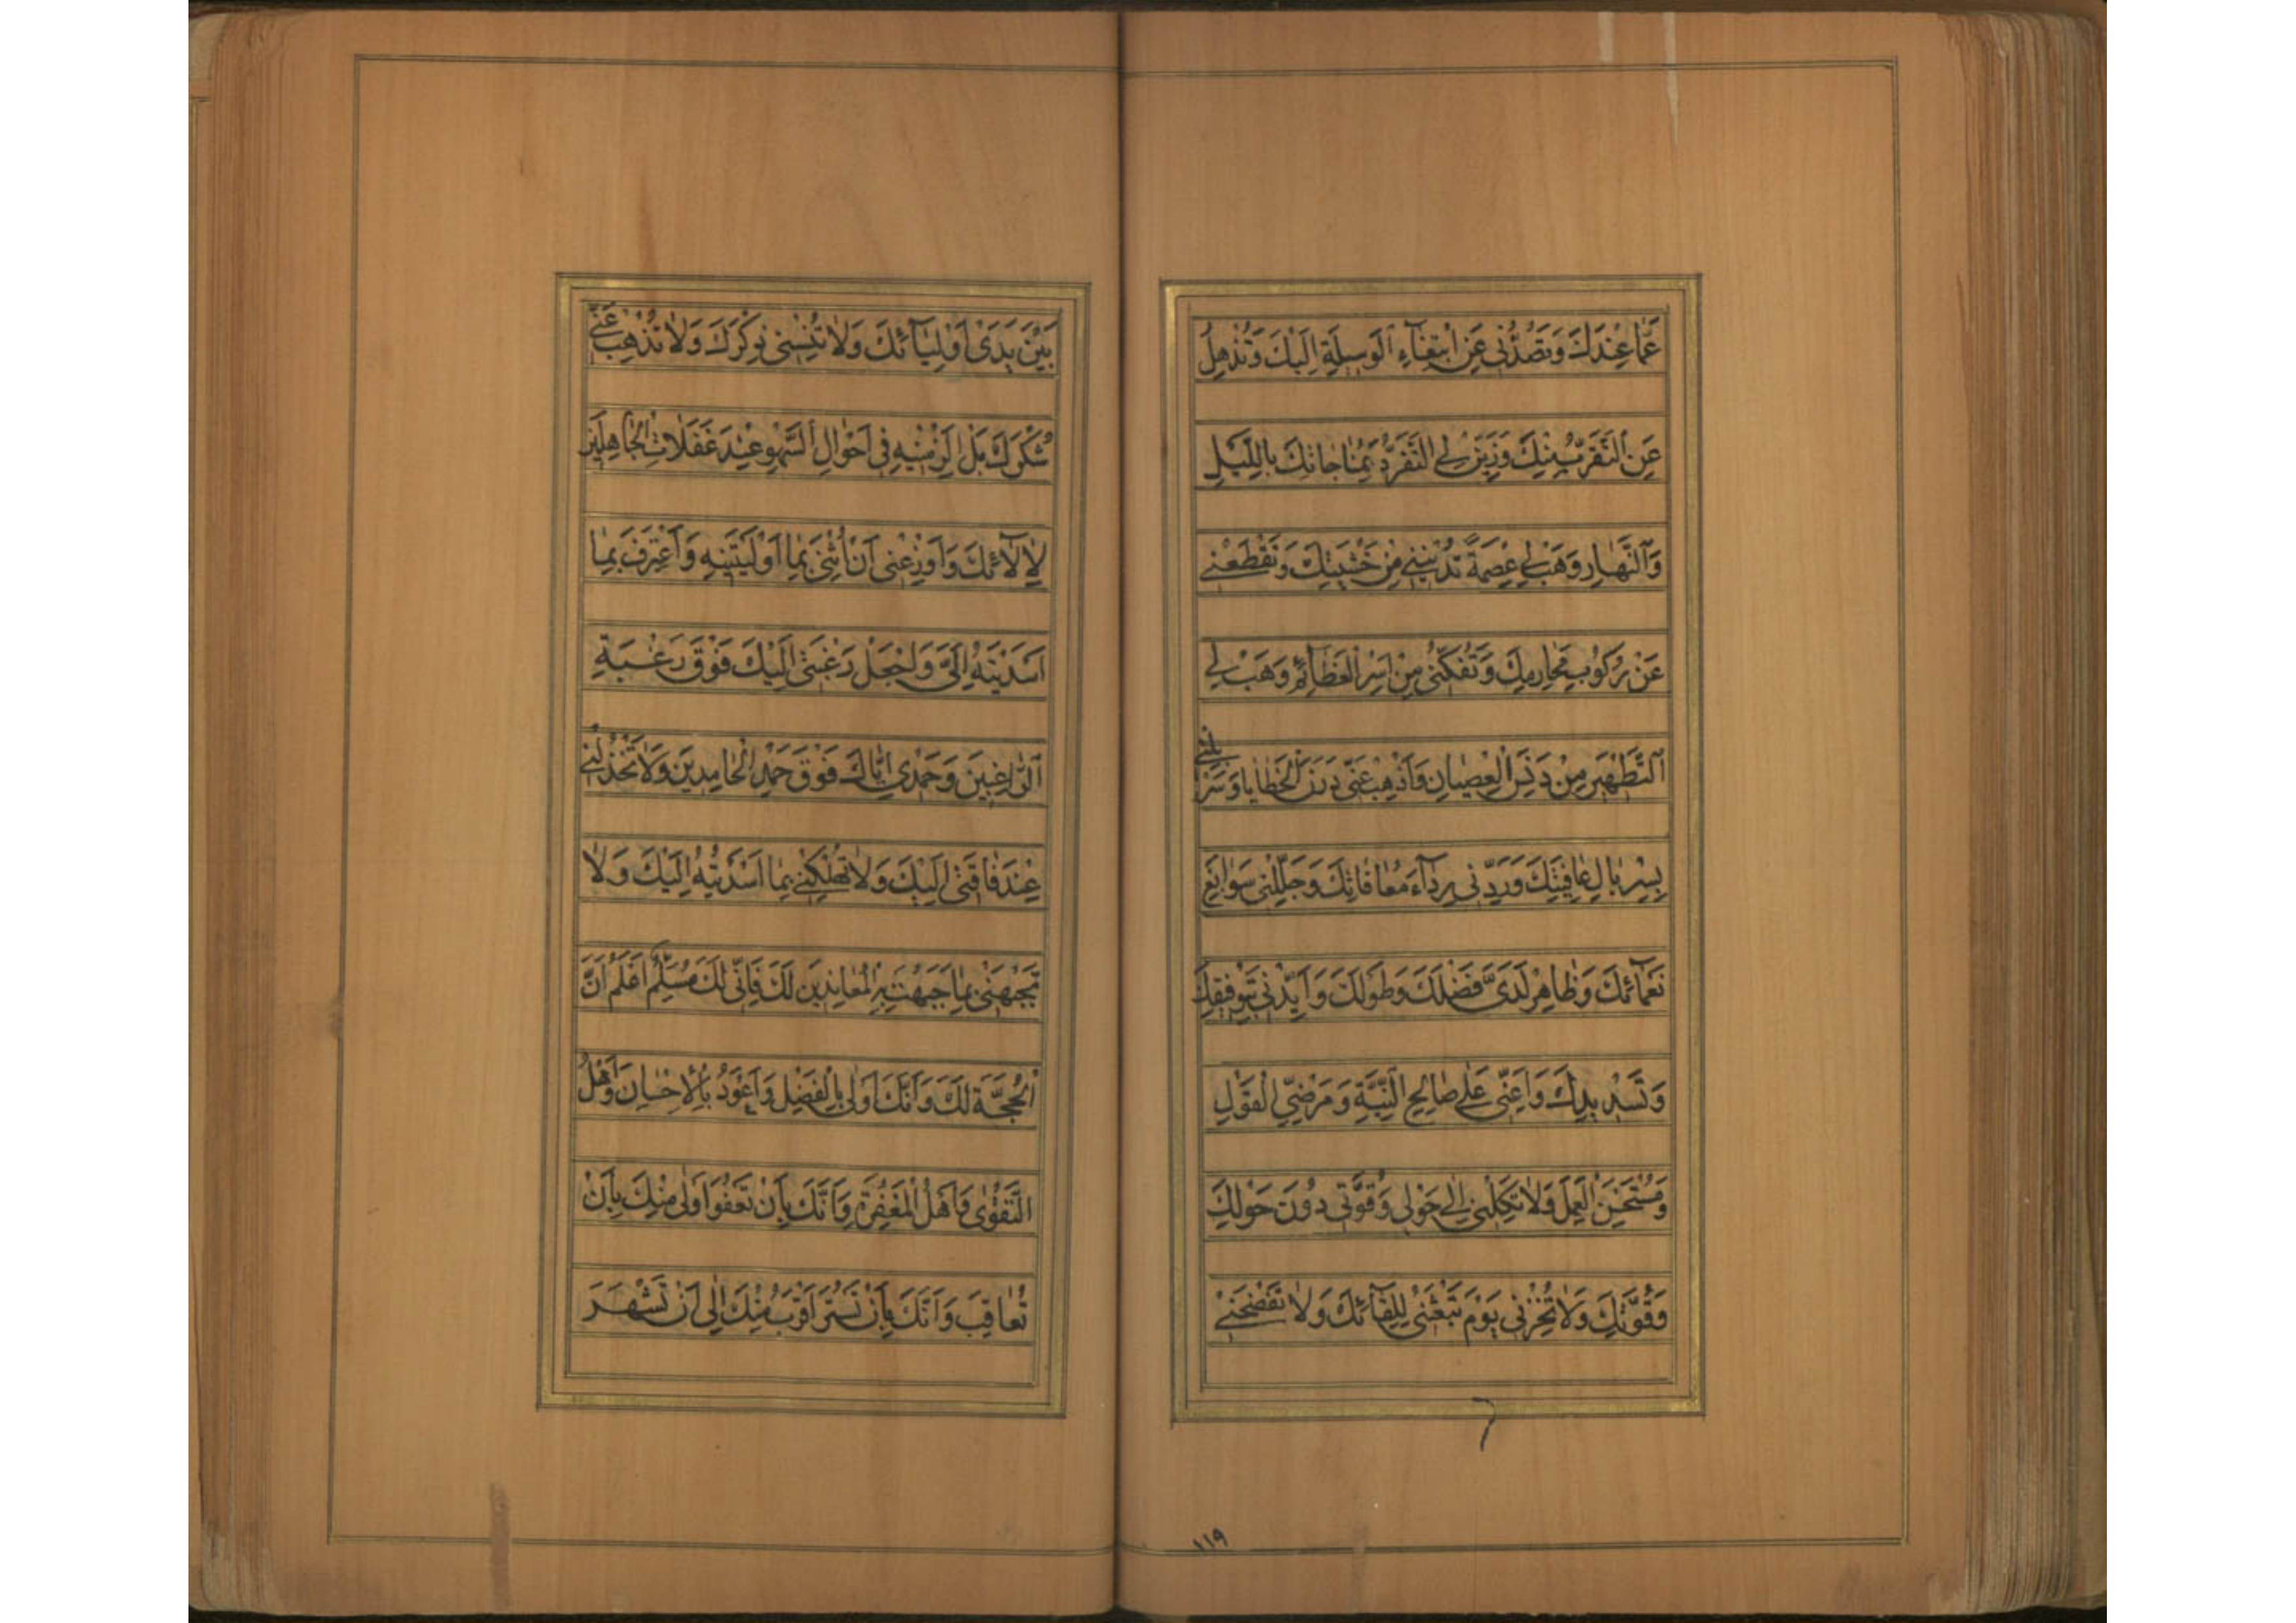 عَمَّا عِنْدَكَ وَتَصُدُّنِي عَنِ ابْتِغَآءِ الْوَسِيلَةِ اِلَيْكَ وَتُذْهِلُ
عَنِ التَّقَرُّبِ مِنْكَ وَزَيِّنْ لِيَ التَّفَرُّدَ بِمُنَاجَاتِكَ بِاللَّيْلِ
وَالنَّهَارِ وَهَبْ لِي عِصْمَةً تُدْنِينِي مِنْ خَشْيَتِكَ وَتَقْطَعُنِي
عَنْ رُكُوبِ مَحَارِمِكَ وَتَفُكُّنِي مِنْ اَسْرِ الْعَظَآئِمِ وَهَبْ لِي
التَّطْهِيرَ مِنْ دَنَسِ الْعِصْيَانِ وَاَذْهِبْ عَنِّي دَرَنَ الْخَطَايَا وَسَرْبِلْنِي
بِسِرْبَالِ عَافِيَتِكَ وَرَدِّنِي بِرِدَآءِ مُعَافَاتِكَ وَجَلِّلْنِي سَوَابِغَ
نَعْمَآئِكَ وَظَاهِرْ لَدَيَّ فَضْلَكَ وَطَوْلَكَ وَاَيِّدْنِي بِتَوْفِيقِكَ
وَتَسْدِيدِكَ وَاَعِنِّي عَلَى صَالِحِ النِّيَّةِ وَمَرْضِيِّ الْقَوْلِ
وَمُسْتَحْسَنِ الْعَمَلِ وَلَا تَكِلْنِي اِلَى حَوْلِي وَقُوَّتِي دُونَ حَوْلِكَ
وَقُوَّتِكَ وَلَا تُخْزِنِي يَوْمَ تَبْعَثُنِي لِلِقَآئِكَ وَلَا تَفْضَحْنِي
١١٩
بَيْنَ يَدَيْ اَوْلِيَآئِكَ وَلَا تُنْسِنِي ذِكْرَكَ وَلَا تُذْهِبْ عَنِّي
شُكْرَكَ بَلْ اَلْزِمْنِيهِ فِي اَحْوَالِ السَّهْوِ عِنْدَ غَفَلَاتِ الْجَاهِلِينَ
لِاٰلَآئِكَ وَاَوْزِعْنِي اَنْ اُثْنِيَ بِمَا اَوْلَيْتَنِيهِ وَاَعْتَرِفَ بِمَا
اَسْدَيْتَهُ اِلَيَّ وَاجْعَلْ رَغْبَتِي اِلَيْكَ فَوْقَ رَغْبَةِ
الرَّاغِبِينَ وَحَمْدِي اِيَّاكَ فَوْقَ حَمْدِ الْحَامِدِينَ وَلَا تَخْذُلْنِي
عِنْدَ فَاقَتِي اِلَيْكَ وَلَا تُهْلِكْنِي بِمَا اَسْدَيْتُهُ اِلَيْكَ وَلَا
تَجْبَهْنِي بِمَا جَبَهْتَ بِهِ الْمُعَانِدِينَ لَكَ فَاِنِّي لَكَ مُسَلِّمٌ اَعْلَمُ اَنَّ
الْحُجَّةَ لَكَ وَاَنَّكَ اَوْلَى بِالْفَضْلِ وَاَعْوَدُ بِالْاِحْسَانِ وَاَهْلُ
التَّقْوٰى وَاَهْلُ الْمَغْفِرَةِ وَاَنَّكَ بِاَنْ تَعْفُوَ اَوْلَى مِنْكَ بِاَنْ
تُعَاقِبَ وَاَنَّكَ بِاَنْ تَسْتُرَ اَقْرَبُ مِنْكَ اِلَى اَنْ تَشْهَرَ